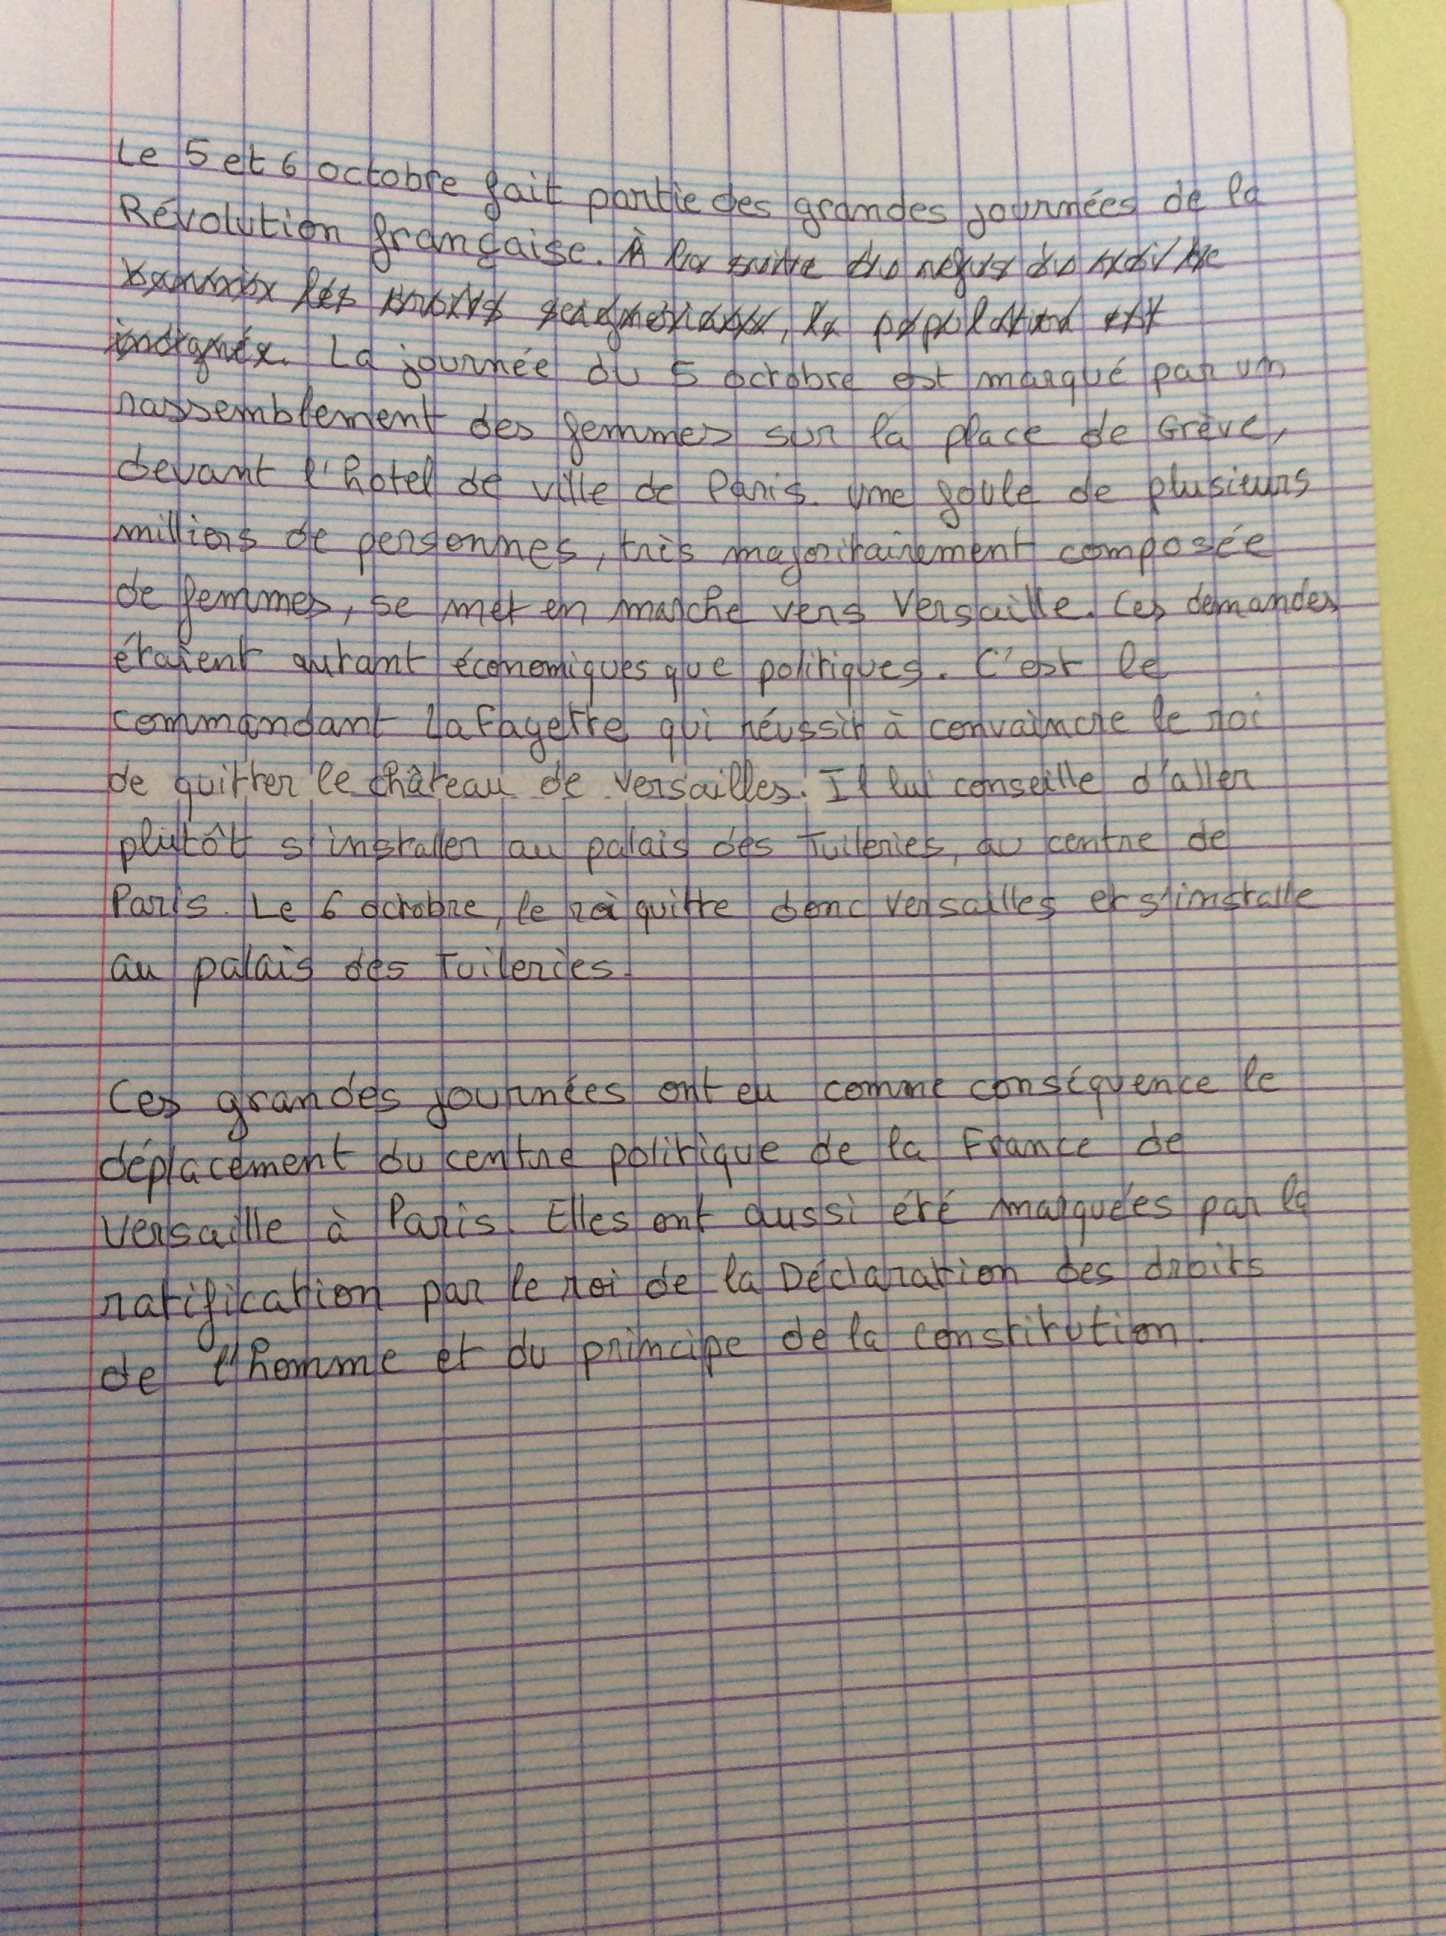 Le 5 et 6 octobre fait partie des grandes journées de la
Révolution française. À la suite du refus du
les, la population est
indignée. La journée du 5 octobre est marqué par un
rassemblement des femmes sur la place de Grève,
devant l'hotel de ville de Paris. Une foule de plusieurs
milliers de personnes, très majoritairement composée
de femmes, se met en marche vers Versaille. Ces demandes
étaient autant économiques que politiques. C'est le
commandant La Fayette qui réussit à convaincre le roi
de quitter le château de Versailles. Il lui conseille d'aller
plutôt s'installer au palais des Tuileries, au centre de
Paris. Le 6 octobre, le roi quitte donc Versailles et s'installe
au palais des Tuileries.
Ces grandes journées ont eu comme conséquence le
déplacement du centre politique de la France de
Versaille à Paris. Elles ont aussi été marquées par la
ratification par le roi de la Déclaration des droits
de l'homme et du principe de la constitution.